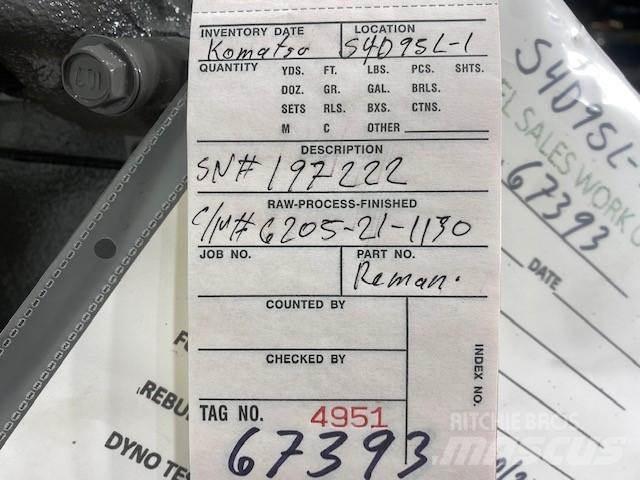 INVENTORY DATE LOCATION
Komatsu S4D95L-1
QUANTITY YDS. FT. LBS. PCS. SHTS.
DOZ. GR. GAL. BRLS.
SETS RLS. BXS. CTNS.
M C OTHER
DESCRIPTION
SN# 197222
RAW-PROCESS-FINISHED
C/M# 6205-21-1130
JOB NO. PART NO.
Reman.
COUNTED BY
CHECKED BY
INDEX NO.
TAG NO. 4951
67393
107
S4D95L-
SALES WORK
67393
DATE
REBU
DYNO TES
RITCHIE BROS
mascus